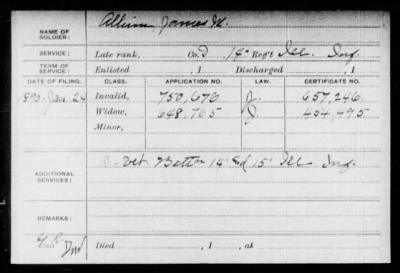 NAME OF SOLDIER: James M.
SERVICE: Late rank, Co. D 14" Reg't Ill. Inf.
TERM OF SERVICE: Enlisted , 1 Discharged , 1
DATE OF FILING. CLASS. APPLICATION NO. LAW. CERTIFICATE NO.
1890 Jan. 24 Invalid, 750,676 J. 657,246
Widow, 648,765 J. 454,495
Minor,
ADDITIONAL SERVICES: Vet Batt'n 14" & 15" Ill Inf.
REMARKS:
Died , 1 , at